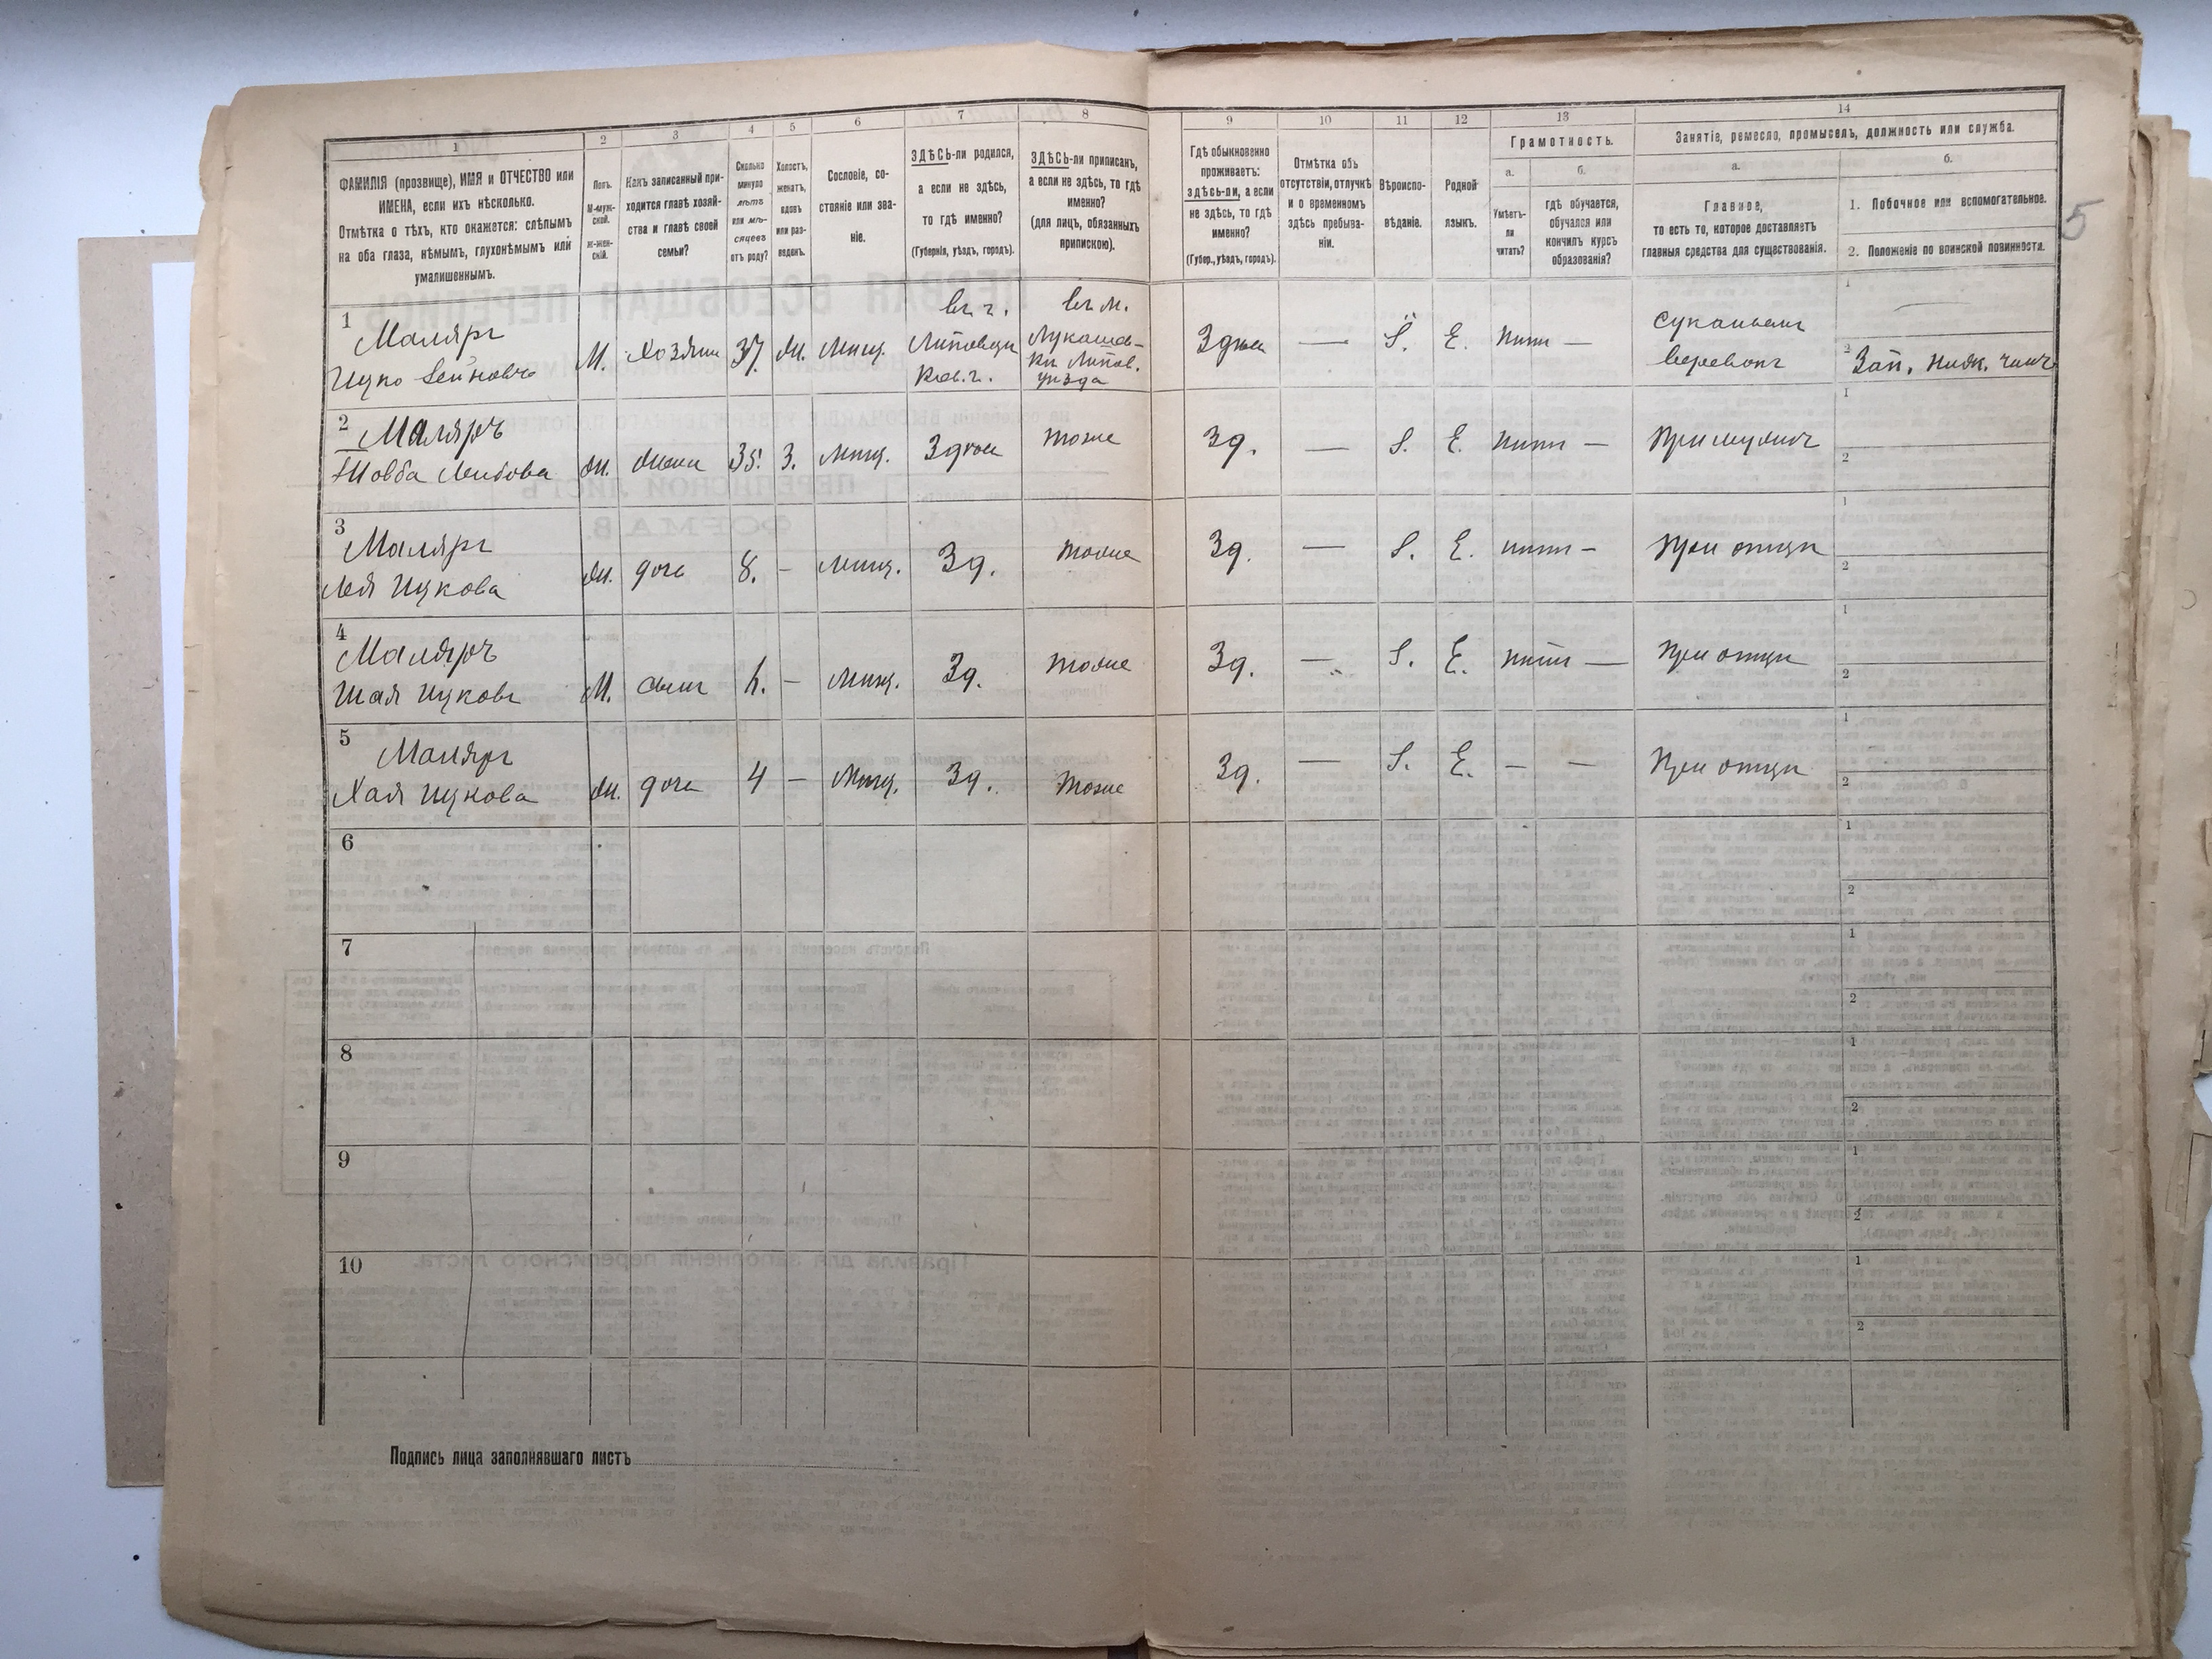 1
2
3
4
5
6
7
8
9
10
11
12
13
14
ФАМИЛІЯ (прозвище), ИМЯ и ОТЧЕСТВО или
ИМЕНА, если ихъ нѣсколько.
Отмѣтка о тѣхъ, кто окажется: слѣпымъ
на оба глаза, нѣмымъ, глухонѣмымъ или
умалишеннымъ.
Полъ.
М-муж-
ской.
ж-жен-
скій.
Какъ записанный при-
ходится главѣ хозяй-
ства и главѣ своей
семьи?
Сколько
минуло
лѣтъ
или мѣ-
сяцевъ
отъ роду?
Холостъ,
женатъ,
вдовъ
или раз-
веденъ.
Сословіе, со-
стояніе или зва-
ніе.
ЗДѢСЬ-ли родился,
а если не здѣсь,
то гдѣ именно?
(Губернія, уѣздъ, городъ).
ЗДѢСЬ-ли приписанъ,
а если не здѣсь, то гдѣ
именно?
(для лицъ, обязанныхъ
припискою).
Гдѣ обыкновенно
проживаетъ:
здѣсь-ли, а если
не здѣсь, то гдѣ
именно?
(Губер., уѣздъ, городъ).
Отмѣтка объ
отсутствіи, отлучкѣ
и о временномъ
здѣсь пребыва-
ніи.
Вѣроиспо-
вѣданіе.
Родной
языкъ.
Грамотность.
а.
Умѣетъ-
ли
читать?
б.
гдѣ обучается,
обучался или
кончилъ курсъ
образованія?
Занятіе, ремесло, промыселъ, должность или служба.
а.
Главное,
то есть то, которое доставляетъ
главныя средства для существованія.
б.
1. Побочное или вспомогательное.
2. Положеніе по воинской повинности.
5
1
Маляръ
Ицко
М.
Хозяин
37.
Ж.
Мѣщ.
въ г.
Липовцы
Кіев. г.
въ м.
Лукашов-
ки Липов.
уѣзда
Здѣсь
—
Е.
нѣтъ —
веревокъ
1
2 Зап. Ниж. чинъ
2
Маляръ
Лейбова
Ж.
жена
35.
З.
Мѣщ.
Здѣсь
тоже
Зд.
—
Е.
нѣтъ —
При мужѣ
1
2
3
Маляръ
Лея Ицкова
Ж.
дочь
8.
—
Мѣщ.
Зд.
тоже
Зд.
—
Е.
нѣтъ —
При отцѣ
1
2
4
Маляръ
Шая Ицковъ
М.
сынъ
—
Мѣщ.
Зд.
тоже
Зд.
—
Е.
нѣтъ —
При отцѣ
1
2
5
Маляръ
Хая Ицкова
Ж.
дочь
4
—
Мѣщ.
Зд.
тоже
Зд.
—
Е.
— —
При отцѣ
1
2
6
1
2
7
1
2
8
1
2
9
1
2
10
1
2
Подпись лица заполнявшаго листъ